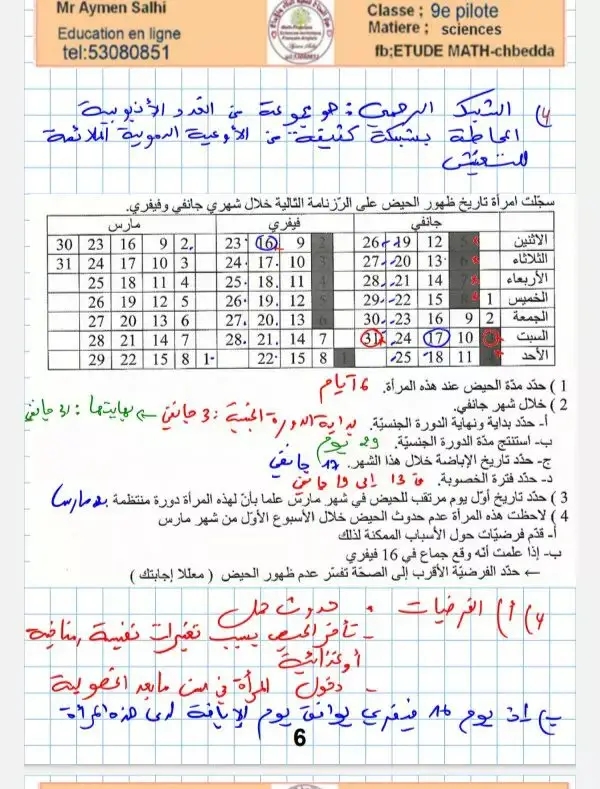 Mr Aymen Salhi
Education en ligne
tel:53080851
Classe ; 9e pilote
Matiere ; sciences
fb;ETUDE MATH-chbedda
4) الشبكة الرحمية : هو مجموعة من الغدد الأنبوبية
المحاطة بشبكة كثيفة من الأوعية الدموية الملائمة
للتعشيش
سجّلت امرأة تاريخ ظهور الحيض على الرّزنامة التّالية خلال شهري جانفي وفيفري.
جانفي فيفري مارس
الاثنين 5 12 19 26 2 9 16 23 2 9 16 23 30
الثلاثاء 6 13 20 27 3 10 17 24 3 10 17 24 31
الأربعاء 7 14 21 28 4 11 18 25 4 11 18 25
الخميس 1 8 15 22 29 5 12 19 26 5 12 19 26
الجمعة 2 9 16 23 30 6 13 20 27 6 13 20 27
السبت 3 10 17 24 31 7 14 21 28 7 14 21 28
الأحد 4 11 18 25 1 8 15 22 1 8 15 22 29
1 ) حدّد مدّة الحيض عند هذه المرأة. 6 أيام
2 ) خلال شهر جانفي.
أ- حدّد بداية ونهاية الدورة الجنسيّة. بداية الدورة الجنسية : 3 جانفي ← نهايتها : 31 جانفي
ب- استنتج مدّة الدورة الجنسيّة. 29 يوم
ج- حدّد تاريخ الإباضة خلال هذا الشهر. 17 جانفي
د- حدّد فترة الخصوبة. 13 إلى 19 جانفي
3 ) حدّد تاريخ أوّل يوم مرتقب للحيض في شهر مارس علما بأنّ لهذه المرأة دورة منتظمة 2 مارس
4 ) لاحظت هذه المرأة عدم حدوث الحيض خلال الأسبوع الأوّل من شهر مارس
أ- قدّم فرضيّات حول الأسباب الممكنة لذلك
ب- إذا علمت أنّه وقع جماع في 16 فيفري
← حدّد الفرضيّة الأقرب إلى الصحّة تفسّر عدم ظهور الحيض ( معللا إجابتك )
4) أ) الفرضيات • حدوث حمل
- تأخر الحيض بسبب تغيرات نفسية، مناخية
أو غذائية
- دخول المرأة في سن ما بعد الخصوبة
ب) إذ يوم 16 فيفري يوافق يوم الإباضة لدى هذه المرأة
6